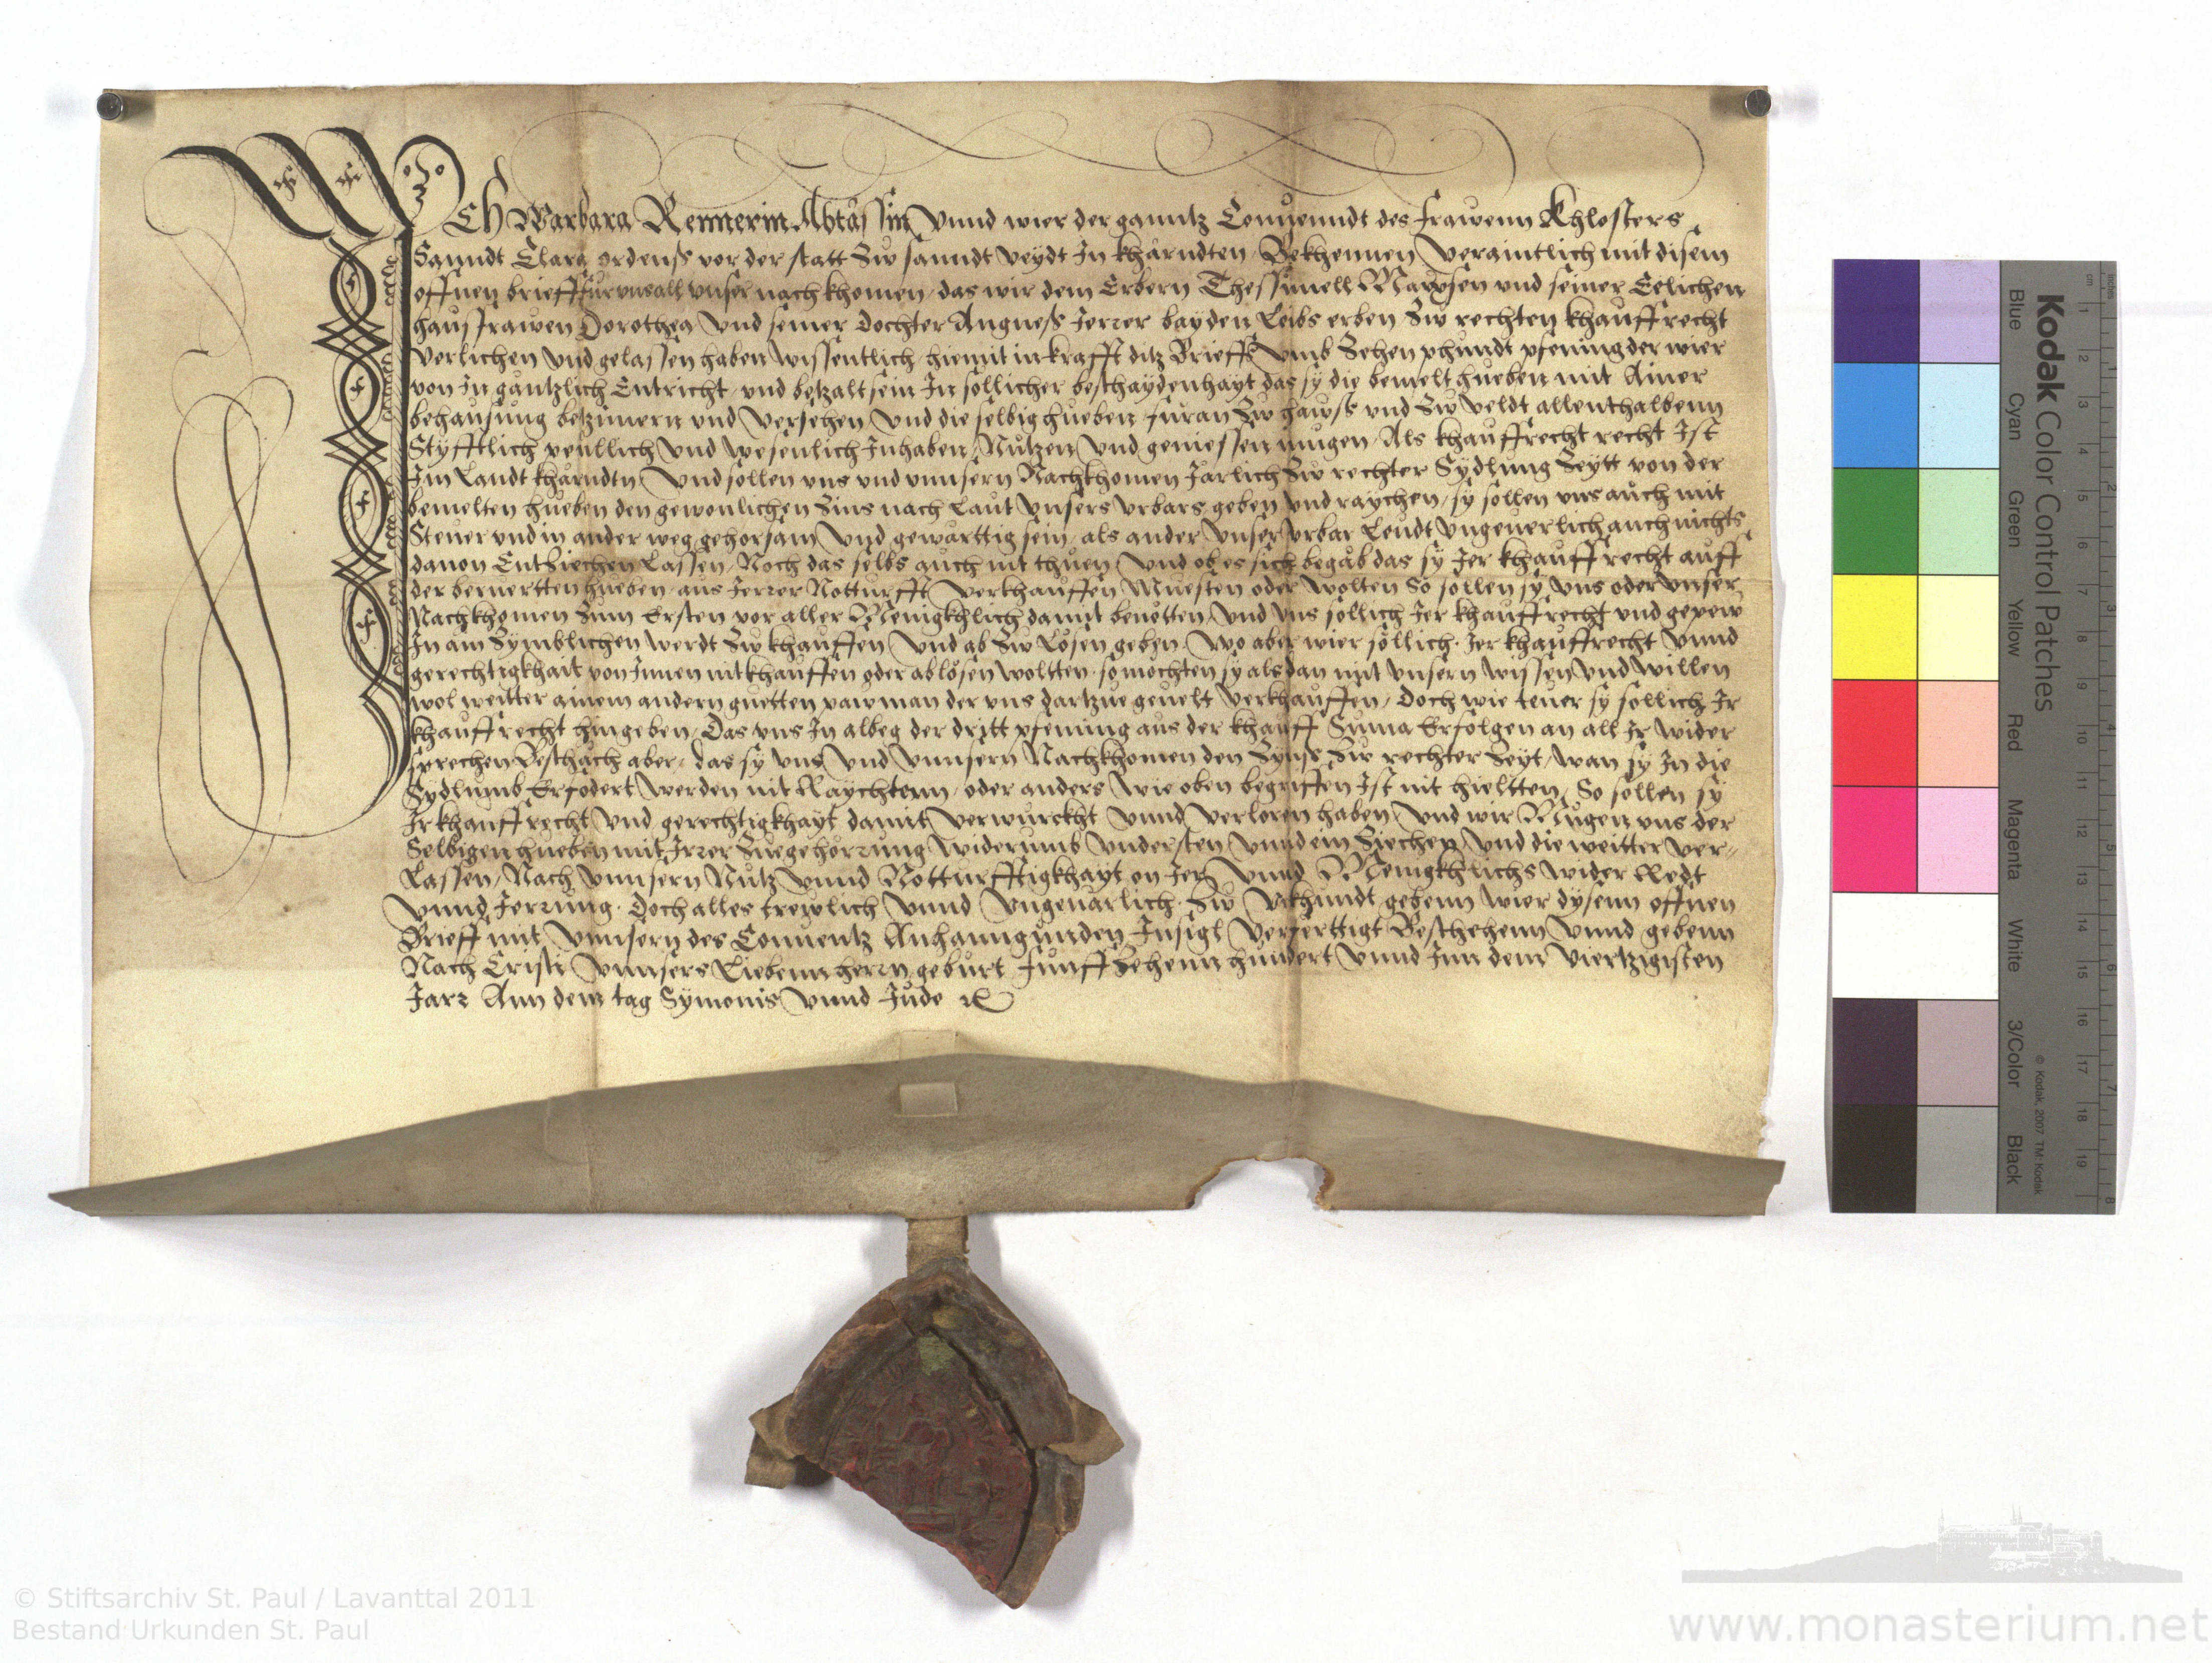 Ich Barbara Rennerin Abtässin Vnnd wier der ganntz Conuenndt des frawenn Khlosters
Sanndt Clara ordenß vor der statt Zw sanndt veydt In khärndten Bekhennen Veraintlich mit disem
offnen brieff für vns all vnser nachkhomen das wir dem Erbern und seiner Eelichen
hausfrawen Dorothea Vnd seiner dochter Angneß Jerrer bayden Leibs erben Zw rechten khauffrecht
Verlichen Vnd gelassen haben Wissentlich hiemit in krafft ditz Brieffs Vmb Zehen phundt pfening der wier
von In gäntzlich Entricht vnd betzalt sein In söllicher beschaydenhayt das sy die bemelt hueben mit Ainer
behausung betzimern vnd Versehen Vnd die selbig hueben füran Zw hawß vnd Zw veldt allenthalbenn
Styfftlich peullich Vnd wesenlich Inhaben Nützen Vnd geniessen mugen Als khauffrecht recht Ist
Im Landt khärndtn Vnd söllen vns vnd vnnsern Nachkhomen Järlich Zw rechter Sydlung Zeytt von der
bemelten hueben den gewonlichen Zins nach Laut Vnsers vrbars geben Vnd raychen sy söllen vns auch mit
Steuer vnd in ander weg gehorsam Vnd gewärttig sein als ander Vnser vrbar Leudt Vngeuerlich auch nichts
dauon EntZiechen Lassen Noch das selbs auch nit thuen Vnd ob es sich begäb das sy Jer khauffrecht auff
der beruertten hueben aus Jerrer Notturfft Verkhauffen Muesten oder wolten So sollen sy Vns oder Vnser
Nachkhomen Zum Ersten vor aller Menigkhlich damit benötten Vnd Vns söllich Jer khauffrecht vnd gepew
In am Zymblichen werdt Zw khauffen Vnd ab Zw Lösen geben Wo aber wier söllich Jer khauffrecht Vnnd
gerechtigkhait von Innen nit khauffen oder ablösen woltten so möchten sy alsdan mit Vnsern wissen Vnd willen
wol weitter ainem andern guetten pawman der vns dartzue geuelt Verkhauffen Doch wie teuer sy söllich Ir
khauffrecht hingeben Das vns In albeg der dritt pfening aus der khauff Suma Erfolgen an all Ir wider
sprechen Beschäch aber das sy vns Vnd Vnnsern Nachkhomen den Zynß Zw rechter Zeyt wan sy In die
Sydlumb Erfodert Werden nit Raychtenn oder anders Wie oben begriffen Ist nit hieltten So söllen sy
Ir khauffrecht Vnd gerechtigkhayt damit verwürckht Vnnd Verloren haben Vnd wir Mügen vns der
Selbigen hueben mit Jrrer Zuegehörrung Widerumb Vndersten Vnnd ein Ziechen Vnd die weitter ver-
Lassen Nach Vnnsern Nutz Vnnd Notturfftigkhayt on Jer Vnnd Menigkhlichs wider Redt
Vnnd Jerrung Doch alles trewlich Vnnd Vngeuärlich Zw Vrkhundt gebenn wier dysenn offnen
Brieff mit Vnnsern des Conuentz Anhanngunden Insigl Verferttigt Beschehenn Vnnd gebenn
Nach Cristi Vnnsers Liebenn herrn geburt fünffZehenn hundert Vnnd Inn dem Viertzigisten
Jarr Ann dem tag Symonis Vnnd Jude
Kodak Color Control Patches
Blue Cyan Green Yellow Red Magenta White 3/Color Black
© Kodak, 2007 TM: Kodak
© Stiftsarchiv St. Paul / Lavanttal 2011
Bestand Urkunden St. Paul
www.monasterium.net